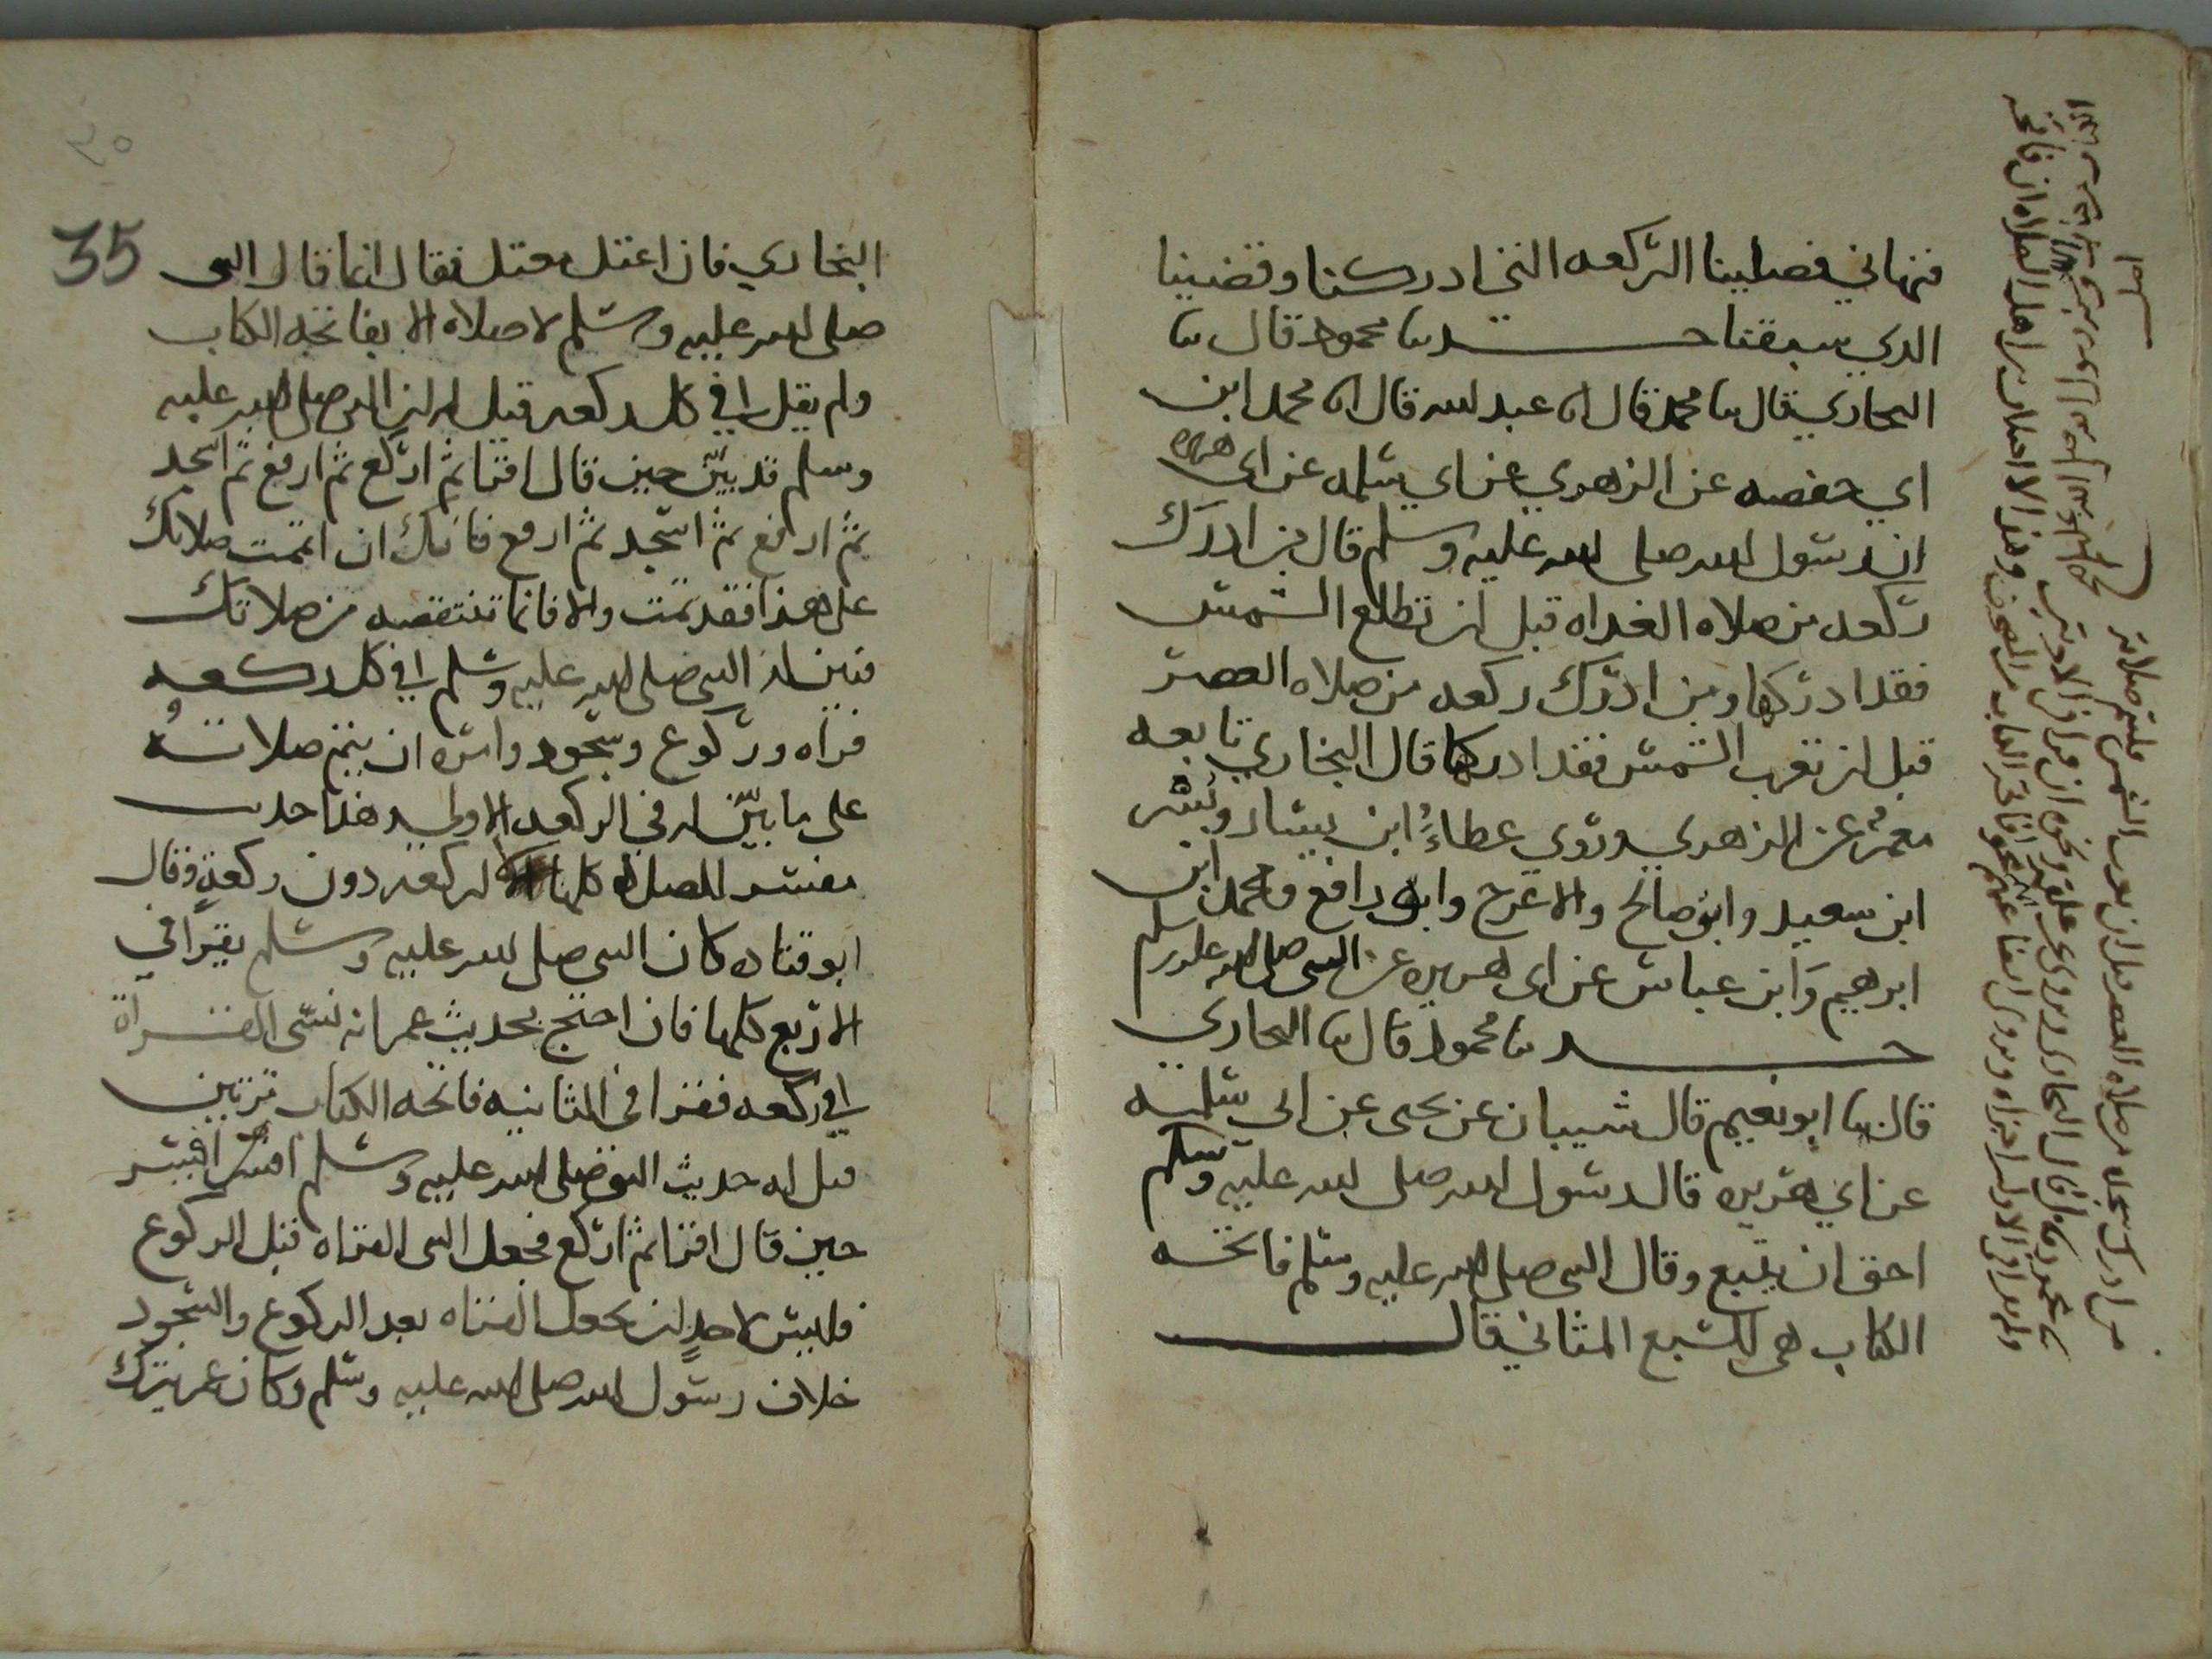 فنهاني فصلينا الركعه التي ادركنا وقضينا
الذي سبقنا حـــدثنا محمود قال ثنا
البخاري قال ثنا محمد قال انا عبد الله قال انا محمد ابن
ابي حفصه عن الزهري عن ابي سلمه عن ابي هريره
ان رسول الله صلى الله عليه وسلم قال من ادرك
ركعه من صلاه الغداه قبل ان تطلع الشمس
فقد ادركها ومن ادرك ركعه من صلاه العصر
قبل ان تغرب الشمس فقد ادركها قال البخاري تابعه
معمر عن الزهري وروي عطاء ابن يسار وبسر
ابن سعيد وابو صالح والاعرج وابو رافع ومحمد ابن
ابرهيم وابن عباس عن ابي هريره عن النبي صلى الله عليه وسلم
حـــدثنا محمود قال ثنا البخاري
قال ثنا ابو نعيم قال شيبان عن يحيى عن ابي سلمه
عن ابي هريره قال رسول الله صلى الله عليه وسلم
احق ان يتبع وقال النبي صلى الله عليه وسلم فاتحه
الكتاب هي السبع المثاني قال
من ادرك سجده من صلاه العصر قبل ان تغرب الشمس فليتم صلاته
35
البخاري فان اعتل معتل فقال انما قال النبي
صلى الله عليه وسلم لا صلاه الا بفاتحه الكتاب
ولم يقل في كل ركعه قيل له ان النبي صلى الله عليه
وسلم قد بين حين قال اقرا ثم اركع ثم ارفع ثم اسجد
ثم ارفع ثم اسجد ثم ارفع فانك ان اتممت صلاتك
على هذا فقد تمت والا فانما تنتقصه من صلاتك
فبين له النبي صلى الله عليه وسلم في كل ركعه
قراه وركوع وسجود وامره ان يتم صلاته
على ما بين له في الركعه الاولى هذا حديث
مفسر للصلاه كلها لا لركعه دون ركعة وقال
ابو قتاده كان النبي صلى الله عليه وسلم يقرا في
الاربع كلها فان احتج بحديث عمر انه نسي القراة
في ركعه فقرا في الثانيه فاتحه الكتاب مرتين
قيل له حديث النبي صلى الله عليه وسلم افسر
حين قال اقرا ثم اركع فجعل النبي القراه قبل الركوع
فليس لاحد ان يجعل القراه بعد الركوع والسجود
خلاف رسول الله صلى الله عليه وسلم وكان عمر يترك